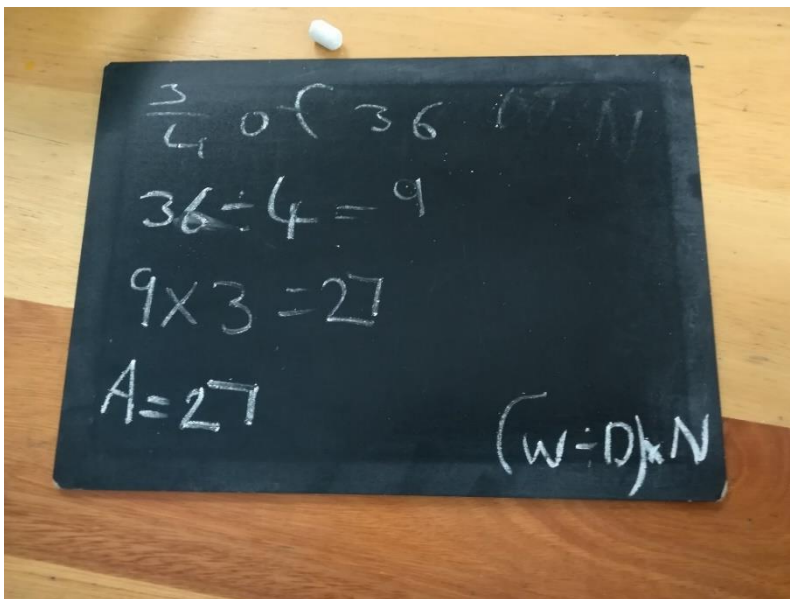 3/4 of 36
36÷4=9
9×3=27
A=27
(W÷D)×N